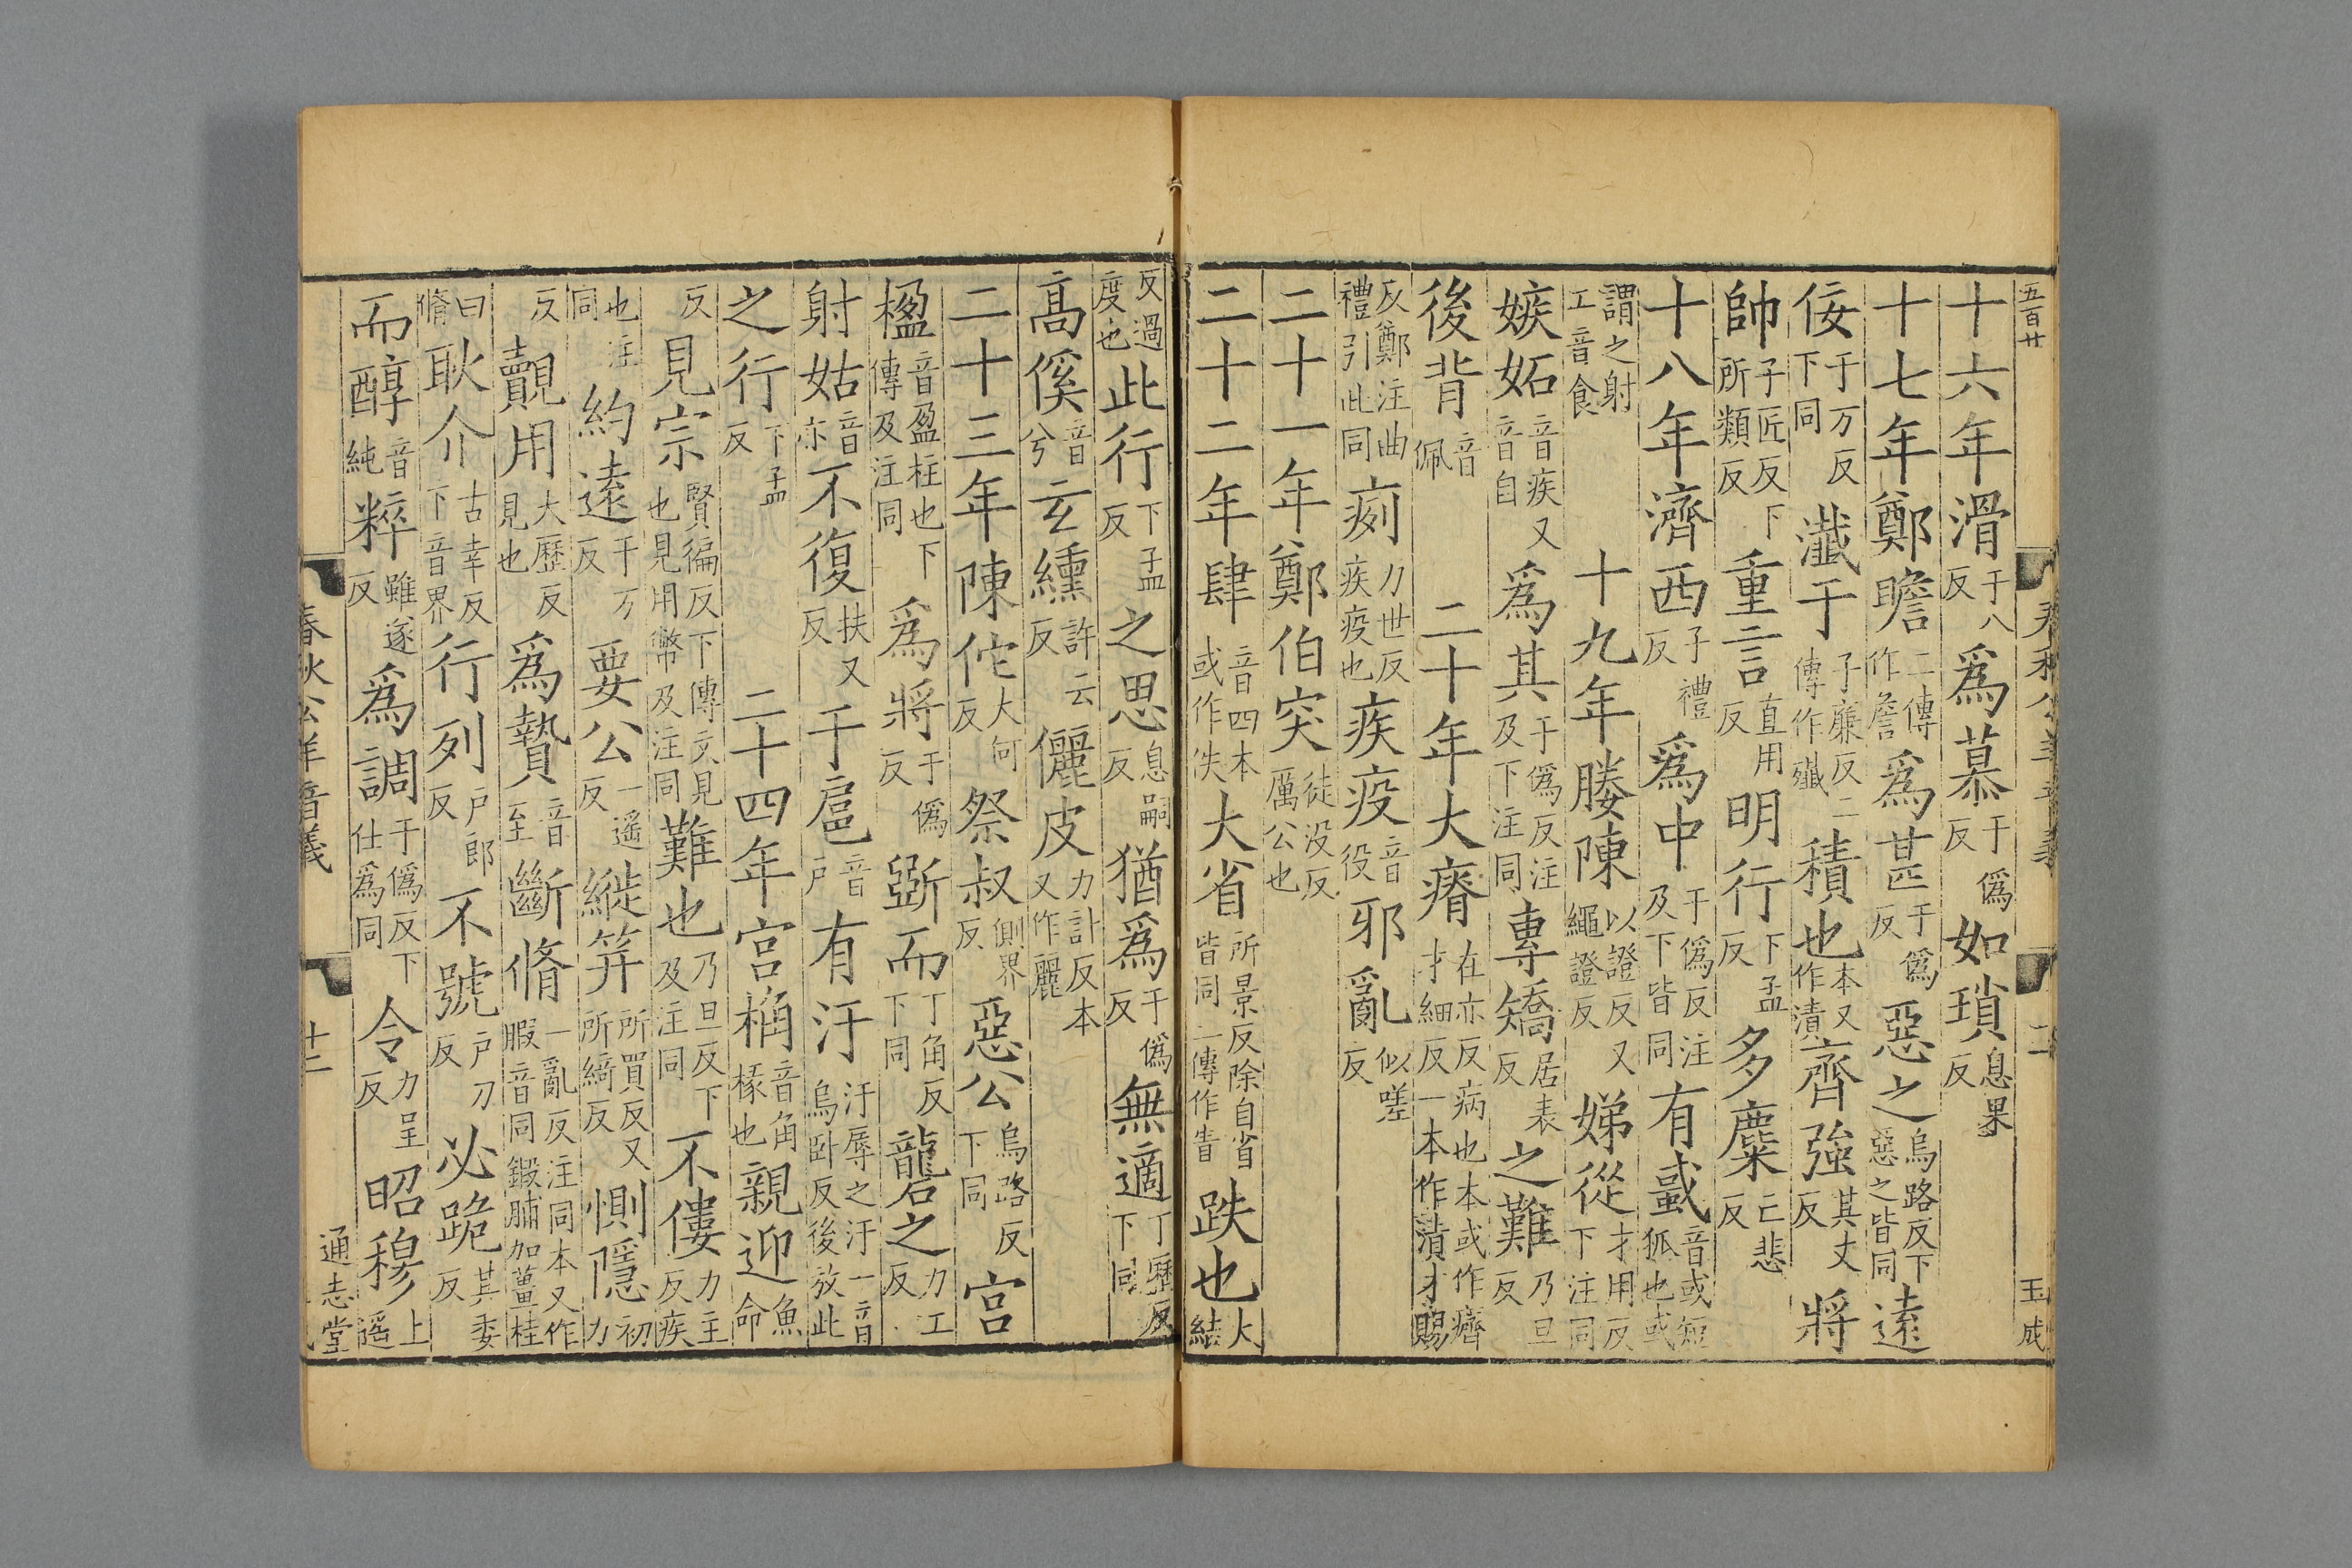 五百廿
春秋公羊音義
十二
玉成
十六年滑于八反爲慕于僞反如瑣息果反
十七年鄭瞻二傳作詹爲甚于僞反惡之烏路反下惡之皆同遠
佞于万反下同瀸于子廉反二傳作殲積也本又作漬齊強其丈反將
帥子匠反下所類反重言直用反明行下孟反多麋亡悲反
十八年濟西子禮反爲中于僞反注及下皆同有蜮音或短狐也或
謂之射工音食十九年媵陳以證反又繩證反娣從才用反下注同
嫉妬音疾又音自爲其于僞反注及下注同專矯居表反之難乃旦反
後背音佩二十年大瘠在亦反病也本或作㾹才細反一本作漬才賜
反鄭注曲禮引此同㾐力世反疾疫也疾疫音役邪亂似嗟反
二十一年鄭伯突徒没反厲公也
二十二年肆音四本或作佚大省所景反除自省皆同二傳作眚跌也大結
反過度也此行下孟反之思息嗣反猶爲于僞反無適丁歷反下同
高傒音兮玄纁許云反儷皮力計反本又作麗
二十三年陳佗大何反祭叔側界反惡公烏路反下同宮
楹音盈柱也下傳及注同爲將于僞反斵而丁角反下同礲之力工反
射姑音亦不復扶又反于扈音戶有汙汙辱之汙一音烏卧反後放此
之行下孟反二十四年宮桷音角椽也親迎魚命
反見宗賢徧反下傳文見也見用幣及注同難也乃旦反下及注同不僂力主反疾
也注同約遠于万反要公一遥反縰笄所買反又所綺反惻隱初力
反覿用大歷反見也爲贄音至斷脩一亂反注同本又作腶音同鍛脯加薑桂
曰脩耿介古幸反下音界行列戶郎反不號戶刀反必跪其委反
而醇音純粹雖遂反爲調于僞反下仕爲同令力呈反昭穆上遥
春秋公羊音義
十二
通志堂